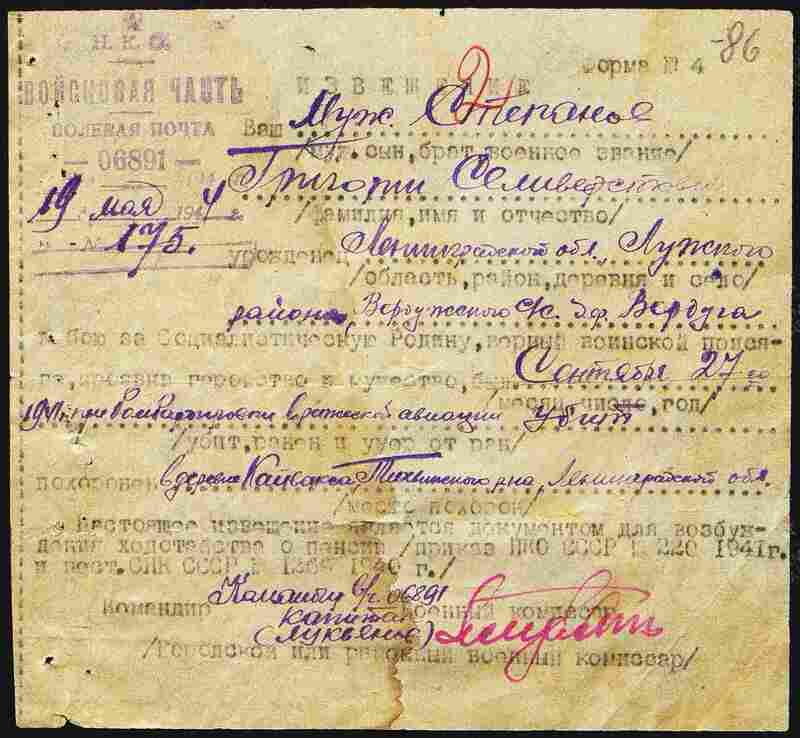 Н.К.О.
ВОЙСКОВАЯ ЧАСТЬ
ПОЛЕВАЯ ПОЧТА
— 06891 —
19 мая 1944 г.
№ 175.
Форма № 4
-86
ИЗВЕЩЕНИЕ
Ваш Муж Степанов
/муж, сын, брат, военное звание/
Григорий Селиверстович
/фамилия, имя и отчество/
урожденец Ленинградской обл. Лужского
/область, район, деревня и село/
района, Вербужского С/с. д. Вербуга
в бою за Социалистическую Родину, верный воинской прися-
ге, проявив геройство и мужество, был Сентябы 27 го
/месяц, число, год/
1941 г. при бомбардировки вражеской авиации убит
/убит, ранен и умер от ран/
похоронен в деревне Кайвакса Тихвинского р-на, Ленинградской обл.
/место похорон/
Настоящее извещение является документом для возбуж-
дения ходотайства о пенсии /приказ НКО СССР № 220 1941г.
и пост. СНК СССР № 1269 1940 г./
Командир в/ч. 06891
капитан
Военный комиссар
/Городской или районый военный комиссар/